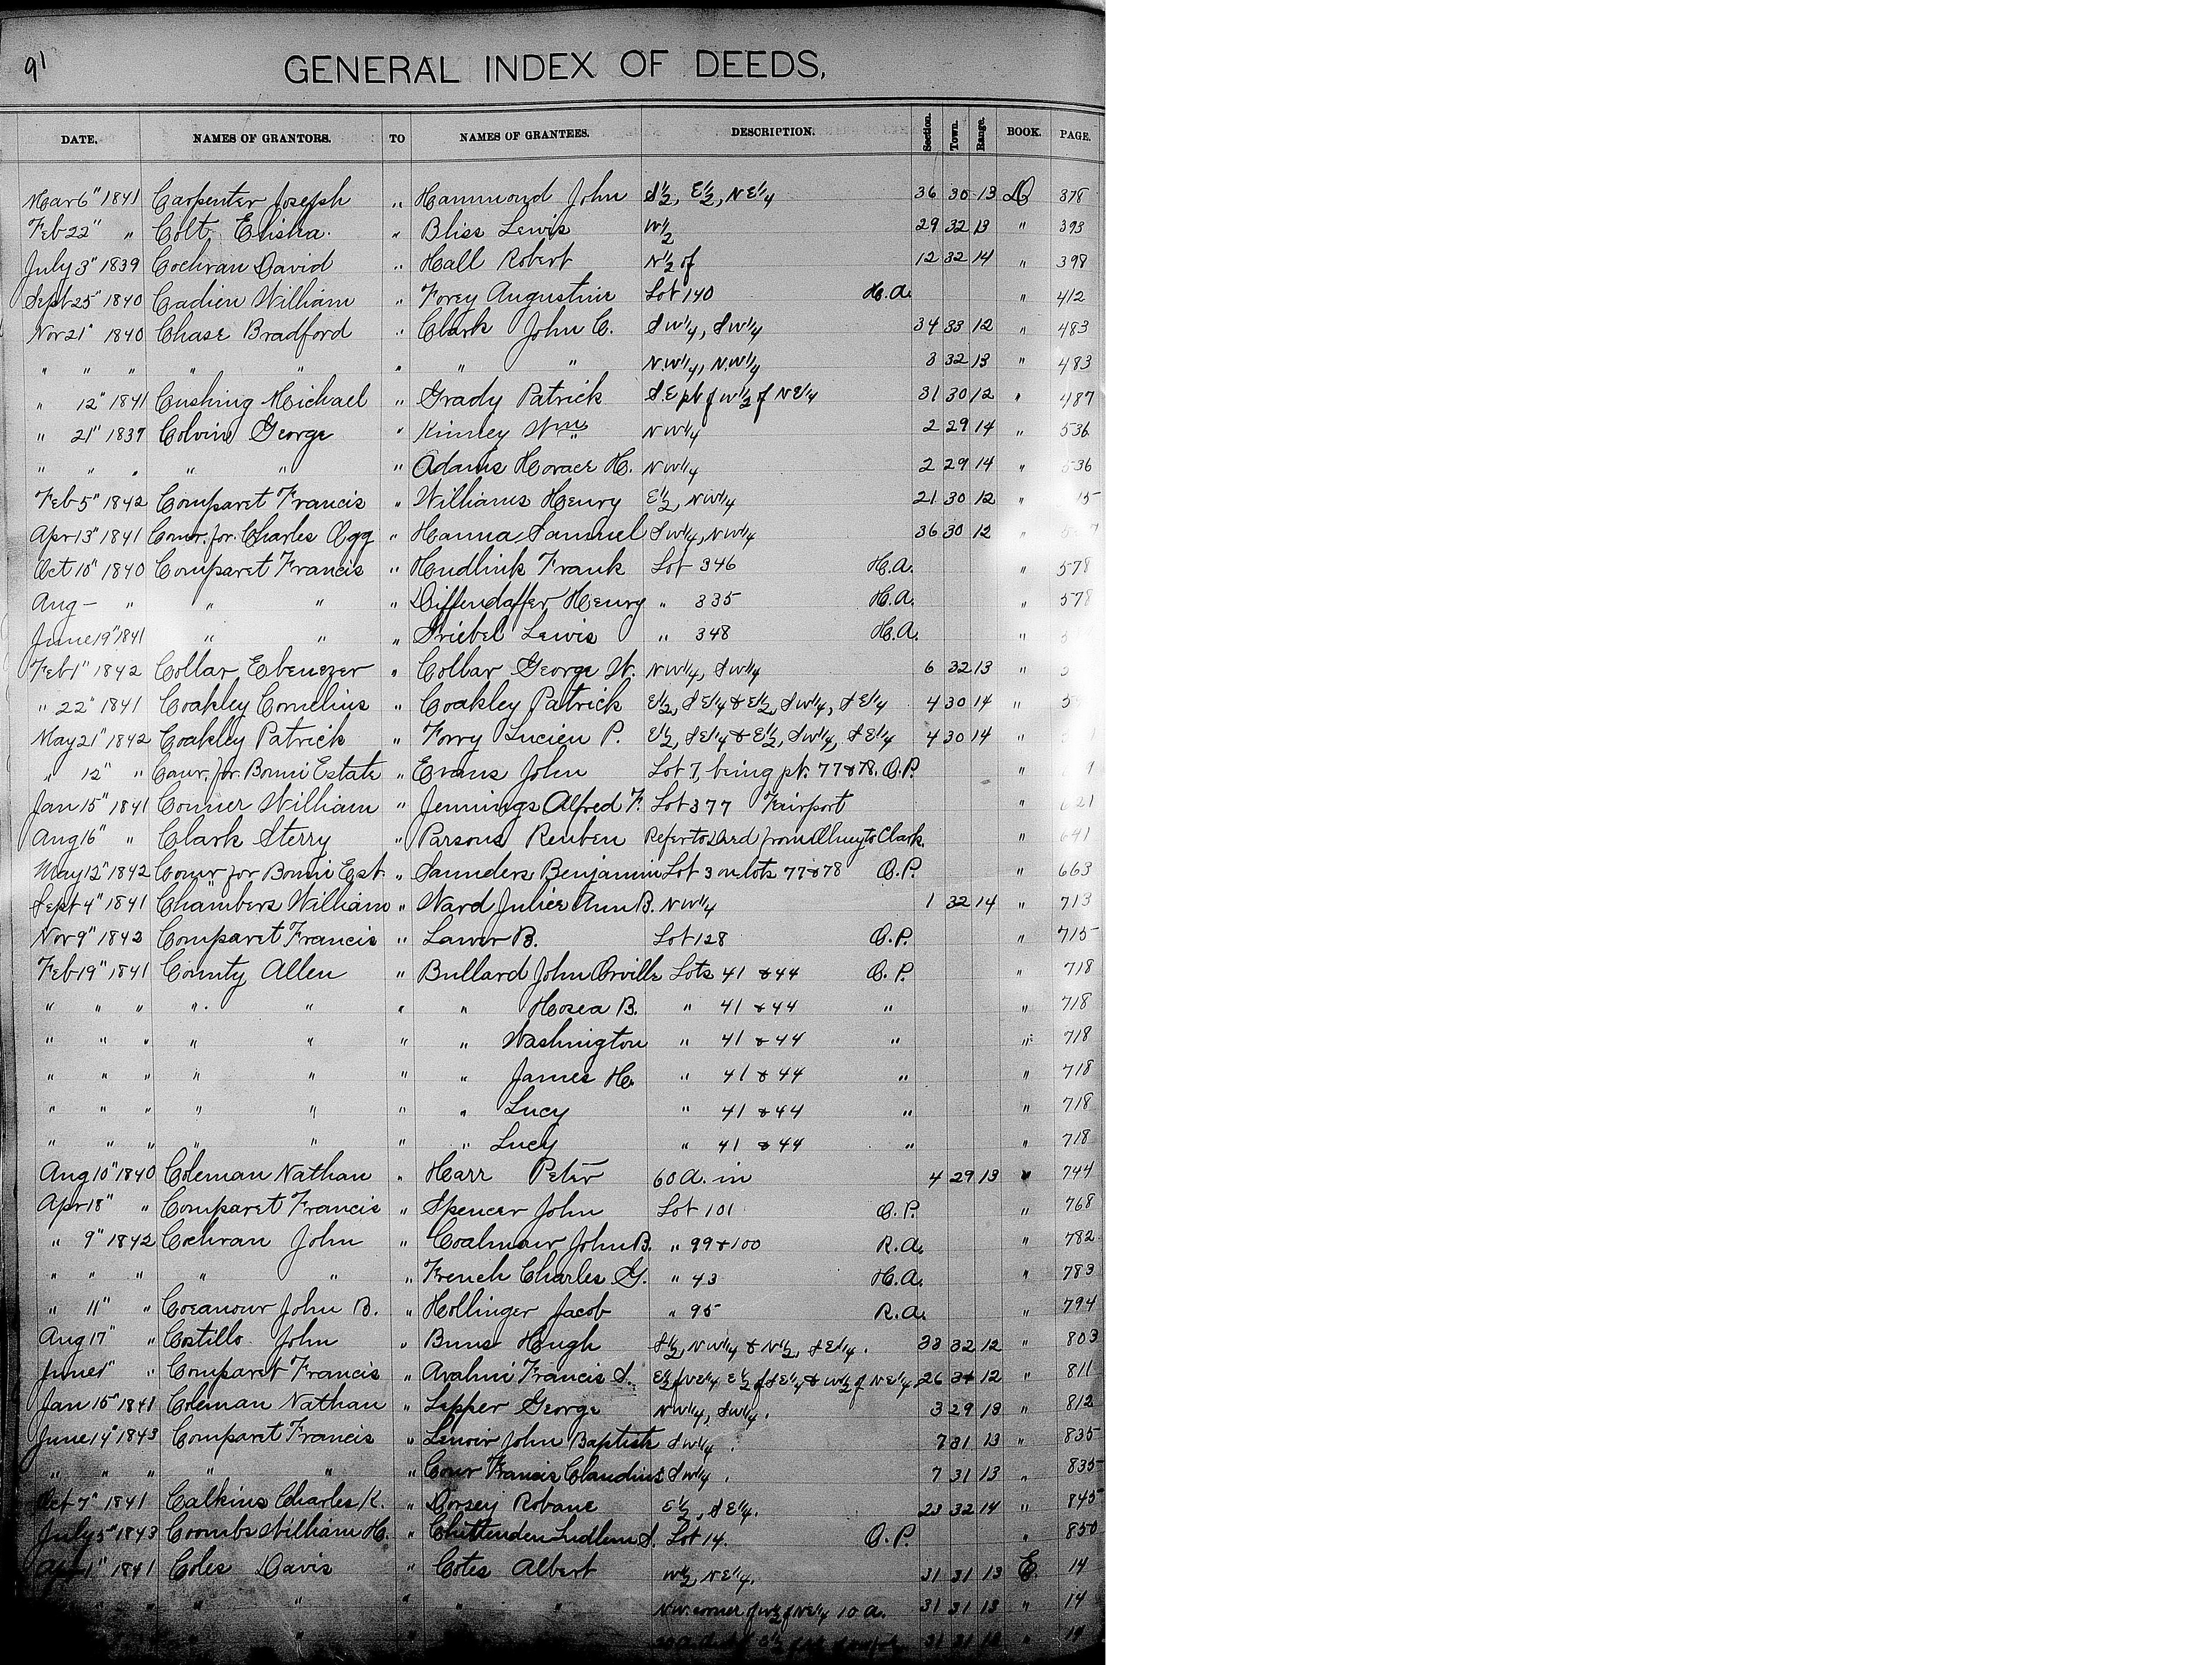 91
GENERAL INDEX OF DEEDS,
DATE. NAMES OF GRANTORS. TO NAMES OF GRANTEES. DESCRIPTION. Section. Town. Range. BOOK. PAGE.
Mar 6" 1841 Carpenter Joseph " Hammond John S½, E½, NE¼ 36 30 13 D 378
Feb 22" " Colt, Elisha. " Bliss Lewis W½ 29 32 13 " 393
July 3" 1839 Cochran David " Hall Robert N½ of 12 32 14 " 398
Sept 25" 1840 Cadieu William " Forey Augustine Lot 140 H.A. " 412
Nov 21" 1840 Chase Bradford " Clark John C. SW¼, SW¼ 34 33 12 " 483
" " " " " " " " N.W¼, N.W¼ 3 32 13 " 483
" 12" 1841 Cushing Michael " Grady Patrick S.E pt of W½ of NE¼ 31 30 12 " 487
" 21" 1837 Colvin George " Kinney Wm NW¼ 2 29 14 " 536
" " " " " " Adams Horace H. NW¼ 2 29 14 " 536
Feb 5" 1842 Comparet Francis " Williams Henry E½, NW¼ 21 30 12 " 15
Apr 13" 1841 Comr. for. Charles " Hanna Samuel SW¼, NW¼ 36 30 12 "
Oct 10" 1840 Comparet Francis " Hudlink Frank Lot 346 H.A. " 578
Aug — " " " " Diffendaffer Henry " 335 H.A. " 578
June 19" 1841 " " " Striebel Lewis " 348 H.A. "
Feb 1" 1842 Collar Ebenezer " Collar George W. NW¼, SW¼ 6 32 13 "
" 22" 1841 Coakley Cornelius " Coakley Patrick E½, SE¼ & E½, SW¼, SE¼ 4 30 14 "
May 21" 1842 Coakley Patrick " Forry Lucien P. E½, SE¼ & E½, SW¼, SE¼ 4 30 14 "
" 12" " Comr. for. Bonni Estate " Evans John Lot 7, being pt. 77 & 78. O.P. "
Jan 15" 1841 Conner William " Jennings Alfred F. Lot 377 Fairport " 621
Aug 16" " Clark Sterry " Parsons Reuben Refer to Deed from to Clark. " 641
May 12" 1842 Comr for Bonni Est. " Saunders Benjamin Lot 3 on lots 77 & 78 O.P. " 663
Sept 4" 1841 Chambers William " Ward Julice Ann B. NW¼ 1 32 14 " 713
Nov 9" 1842 Comparet Francis " Lawer B. Lot 128 O.P. " 715
Feb 19" 1841 County Allen " Bullard John Orville Lots 41 & 44 O.P. " 718
" " " " " " " Hosea B. " 41 & 44 " " 718
" " " " " " " Washington " 41 & 44 " " 718
" " " " " " " James H. " 41 & 44 " " 718
" " " " " " " Lucy " 41 & 44 " " 718
" " " " " " " Lucy " 41 & 44 " " 718
Aug 10" 1840 Coleman Nathan " Harr Peter 60 A. in 4 29 13 " 744
Apr 18" " Comparet Francis " Spencer John Lot 101 O.P. " 768
" 9" 1842 Cochran John " Coalmaw John B. " 99 & 100 R.A. " 782
" " " " " " French Charles G. " 43 H.A. " 783
" 11" " Coeanour John B. " Hollinger Jacob " 95 R.A. " 794
Aug 17" " Costillo John " Buns Hough S½, NW¼ & N½, SE¼. 33 32 12 " 803
June 1" " Comparet Francis " Avalini Francis S. E½ of NE¼ E½ of SE¼ & W½ of NE¼ 26 34 12 " 811
Jan 15" 1841 Coleman Nathan " Lepper George NW¼, SW¼. 3 29 13 " 812
June 14" 1843 Comparet Francis " Lenoir John Baptiste SW¼. 7 31 13 " 835
" " " " " " Cour Francis Claudius SW¼. 7 31 13 " 835
Oct 7" 1841 Calkins Charles K. " Dorsey Robane E½, SE¼. 23 32 14 " 845
July 5" 1843 Coombs William H. " Chittenden Ludlum S. Lot 14. O.P. " 850
Apr 1" 1841 Coles Davis " Cotes Albert W½, NE¼. 31 31 13 E 14
" " " " " " " N.W. corner of W½ of NE¼ 10 A. 31 31 13 " 14
" " 31 31 13 " 14